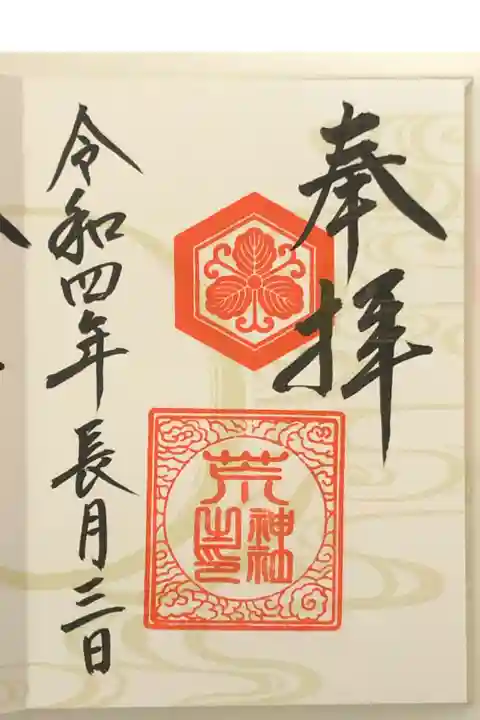 奉拝
荒神社之印
令和四年長月三日